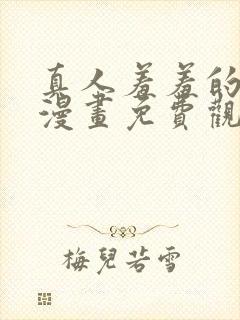 真人羞羞的
漫畫免費觀
梅兒若雪